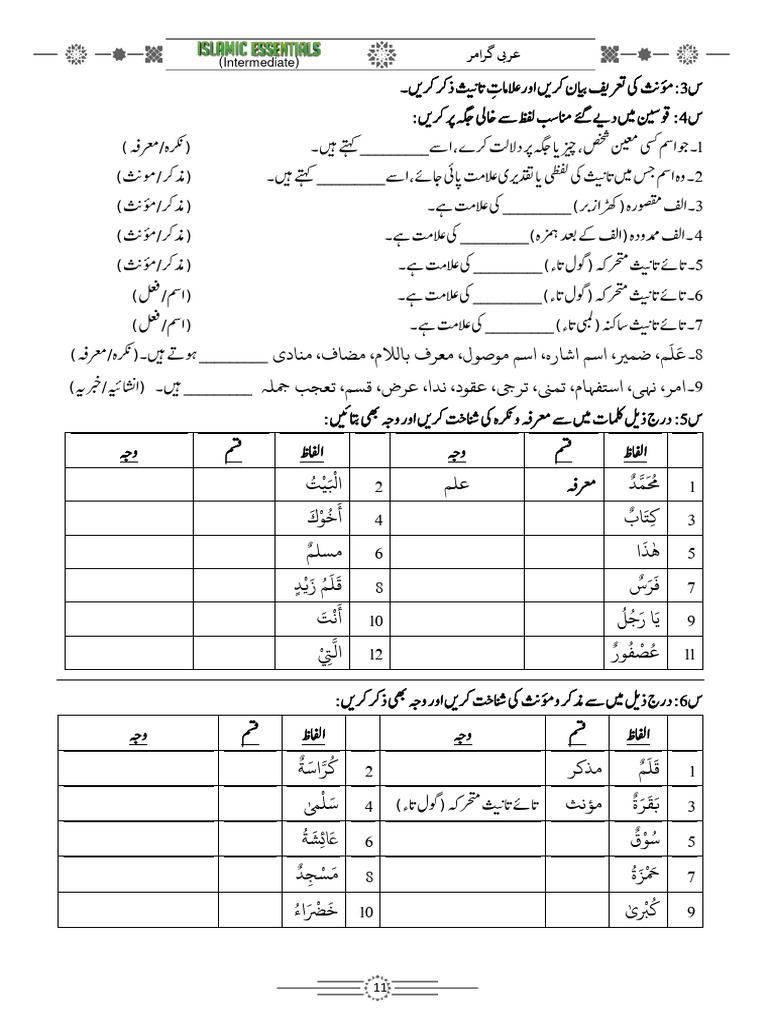 عربی گرامر
ISLAMIC ESSENTIALS
(Intermediate)
س3: مؤنث کی تعریف بیان کریں اور علاماتِ تانیث ذکر کریں۔
س4: قوسین میں دیے گئے مناسب لفظ سے خالی جگہ پر کریں:
1۔ جو اسم کسی معین شخص، چیز یا جگہ پر دلالت کرے، اسے ________ کہتے ہیں۔ (نکرہ/معرفہ)
2۔ وہ اسم جس میں تانیث کی لفظی یا تقدیری علامت پائی جائے، اسے ________ کہتے ہیں۔ (مذکر/مونث)
3۔ الف مقصورہ (کھڑا زبر) ________ کی علامت ہے۔ (مذکر/مؤنث)
4۔ الف ممدودہ (الف کے بعد ہمزہ) ________ کی علامت ہے۔ (مذکر/مؤنث)
5۔ تائے تانیث متحرکہ (گول تاء) ________ کی علامت ہے۔ (مذکر/مؤنث)
6۔ تائے تانیث متحرکہ (گول تاء) ________ کی علامت ہے۔ (اسم/فعل)
7۔ تائے تانیث ساکنہ (لمبی تاء) ________ کی علامت ہے۔ (اسم/فعل)
8۔ عَلَم، ضمیر، اسم اشارہ، اسم موصول، معرف باللام، مضاف، منادی ________ ہوتے ہیں۔ (نکرہ/معرفہ)
9۔ امر، نہی، استفہام، تمنی، ترجی، عقود، ندا، عرض، قسم، تعجب جملہ ________ ہیں۔ (انشائیہ/خبریہ)
س5: درج ذیل کلمات میں سے معرفہ و نکرہ کی شناخت کریں اور وجہ بھی بتائیں:
الفاظ قسم وجہ الفاظ قسم وجہ
1 مُحَمَّدٌ معرفہ علم 2 الْبَيْتُ
3 كِتَابٌ 4 أَخُوْكَ
5 هٰذَا 6 مسلمٌ
7 فَرَسٌ 8 قَلَمُ زَيْدٍ
9 يَا رَجُلُ 10 أَنْتَ
11 عُصْفُورٌ 12 الَّتِيْ
س6: درج ذیل میں سے مذکر و مؤنث کی شناخت کریں اور وجہ بھی ذکر کریں:
الفاظ قسم وجہ الفاظ قسم وجہ
1 قَلَمٌ مذکر 2 كُرَّاسَةٌ
3 بَقَرَةٌ مؤنث تائے تانیث متحرکہ (گول تاء) 4 سَلْمیٰ
5 سُوْقٌ 6 عَائِشَةُ
7 حَمْزَةُ 8 مَسْجِدٌ
9 كُبْریٰ 10 خَضْرَاءُ
11